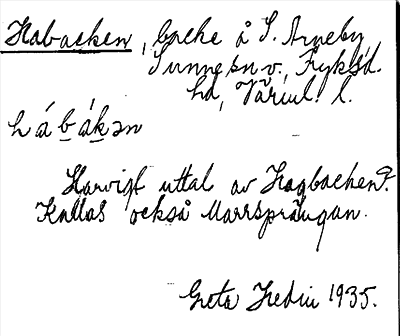 Habacken, backe å S. Arneby
Sunne sn v., Fryksd.
hd, Värml. l.
hábákən
Harvigt uttal av Hagbacken?
Kallas också Marrsprängan.
Greta Hedin 1935.